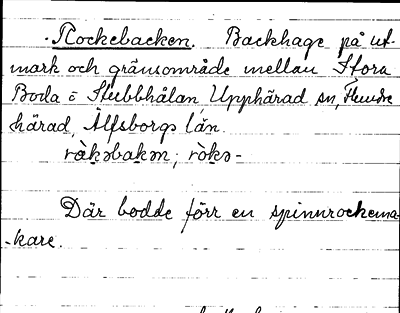 ·Rockebacken. Backhage på ut-
mark och gränsområde mellan Stora
Boda o Stubbhålan, Upphärad sn, Flundre
härad, Älfsborgs län.
ròkəbakən; ròkə-
Där bodde förr en spinnrockema-
-kare.